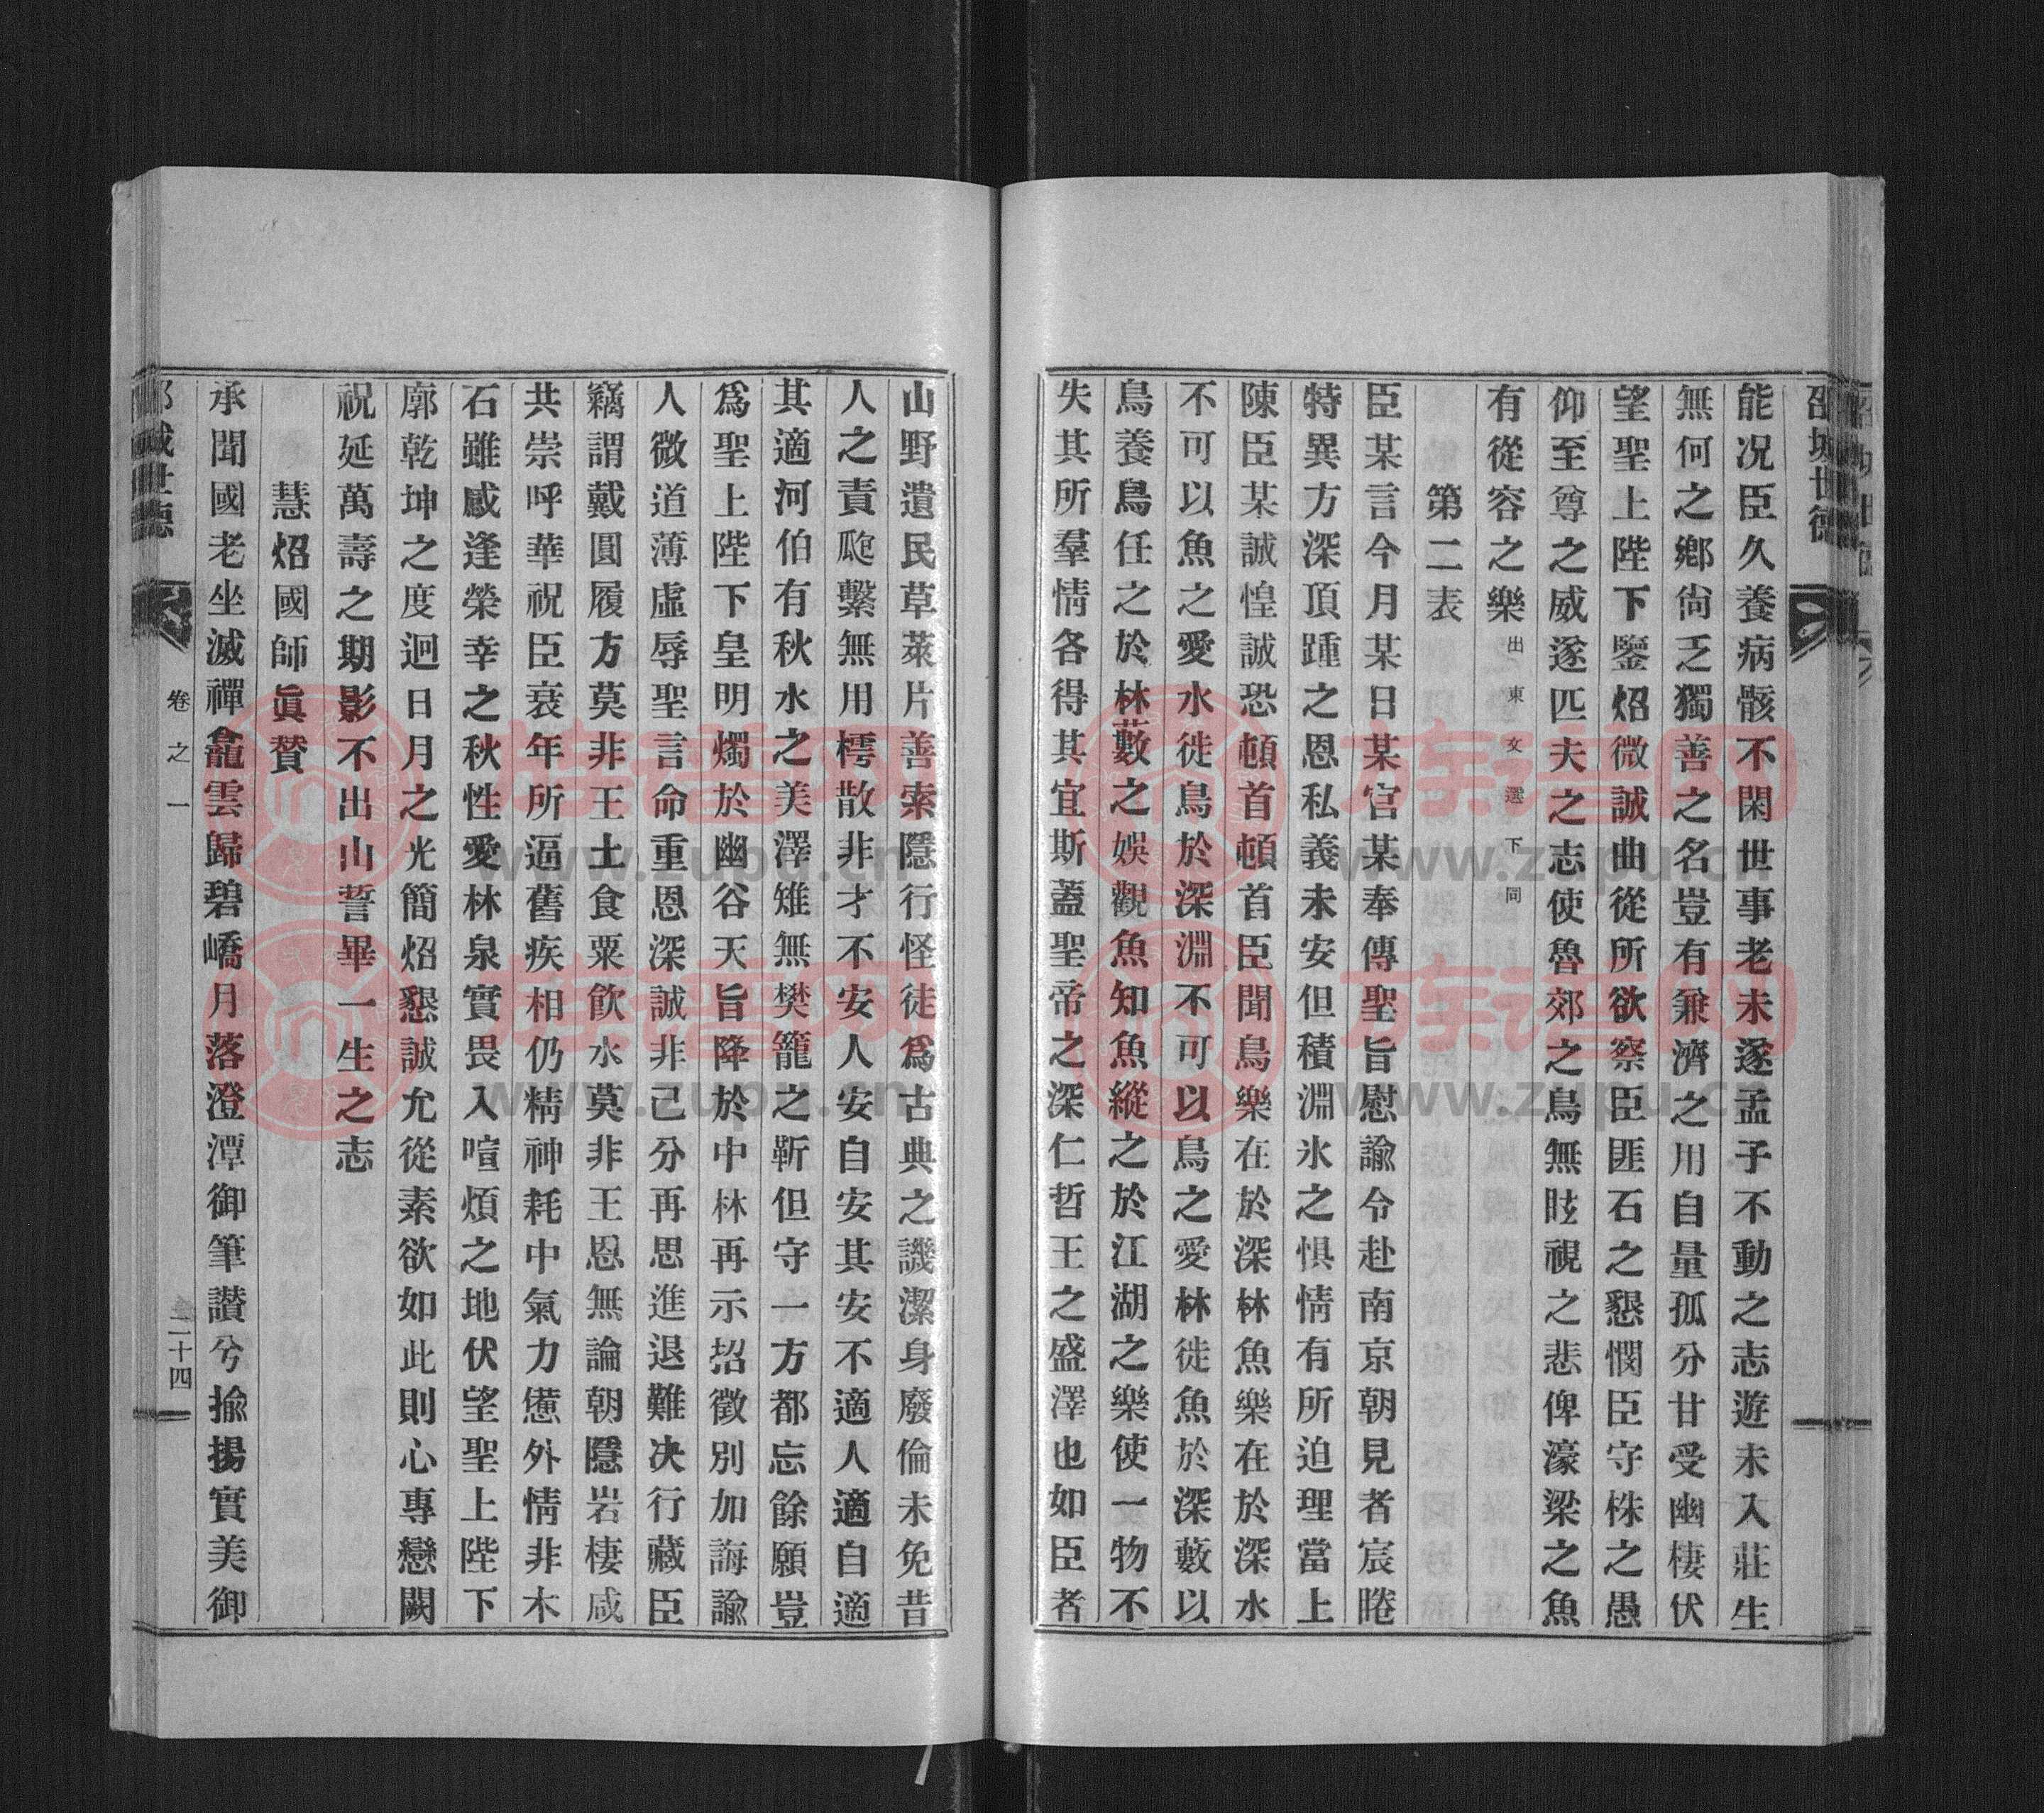 邵城世德
能况臣久養病骸不閑世事老未遂孟子不動之志遊未入莊生
無何之鄕尙乏獨善之名豈有兼濟之用自量孤分甘受幽棲伏
望聖上陛下鑒炤微誠曲從所欲察臣匪石之懇憫臣守株之愚
仰至尊之威遂匹夫之志使魯郊之鳥無眩視之悲俾濠梁之魚
有從容之樂出東文選下同
第二表
臣某言今月某日某官某奉傳聖旨慰諭令赴南京朝見者宸睠
特異方深頂踵之恩私義未安但積淵氷之惧情有所迫理當上
陳臣某誠惶誠恐頓首頓首臣聞鳥樂在於深林魚樂在於深水
不可以魚之愛水徙鳥於深淵不可以鳥之愛林徙魚於深藪以
鳥養鳥任之於林藪之娛觀魚知魚縱之於江湖之樂使一物不
失其所羣情各得其宜斯蓋聖帝之深仁哲王之盛澤也如臣者
山野遺民草萊片善索隱行怪徒爲古典之譏潔身廢倫未免昔
人之責匏繫無用樗散非才不安人安自安其安不適人適自適
其適河伯有秋水之美澤雉無樊籠之蘄但守一方都忘餘願豈
爲聖上陛下皇明燭於幽谷天旨降於中林再示招徵別加誨諭
人微道薄虛辱聖言命重恩深誠非已分再思進退難决行藏臣
竊謂戴圓履方莫非王土食粟飮水莫非王恩無論朝隱岩棲咸
共崇呼華祝臣衰年所逼舊疾相仍精神耗中氣力憊外情非木
石雖感逢榮幸之秋性愛林泉實畏入喧煩之地伏望聖上陛下
廓乾坤之度迴日月之光簡炤懇誠允從素欲如此則心專戀闕
祝延萬壽之期影不出山誓畢一生之志
慧炤國師眞贊
承聞國老坐滅禪龕雲歸碧嶠月落澄潭御筆讃兮揄揚實美御
邵城世德 卷之一 二十四
族谱网
www.zupu.cn
族谱网
www.zupu.cn
族谱网
www.zupu.cn
族谱网
www.zupu.cn